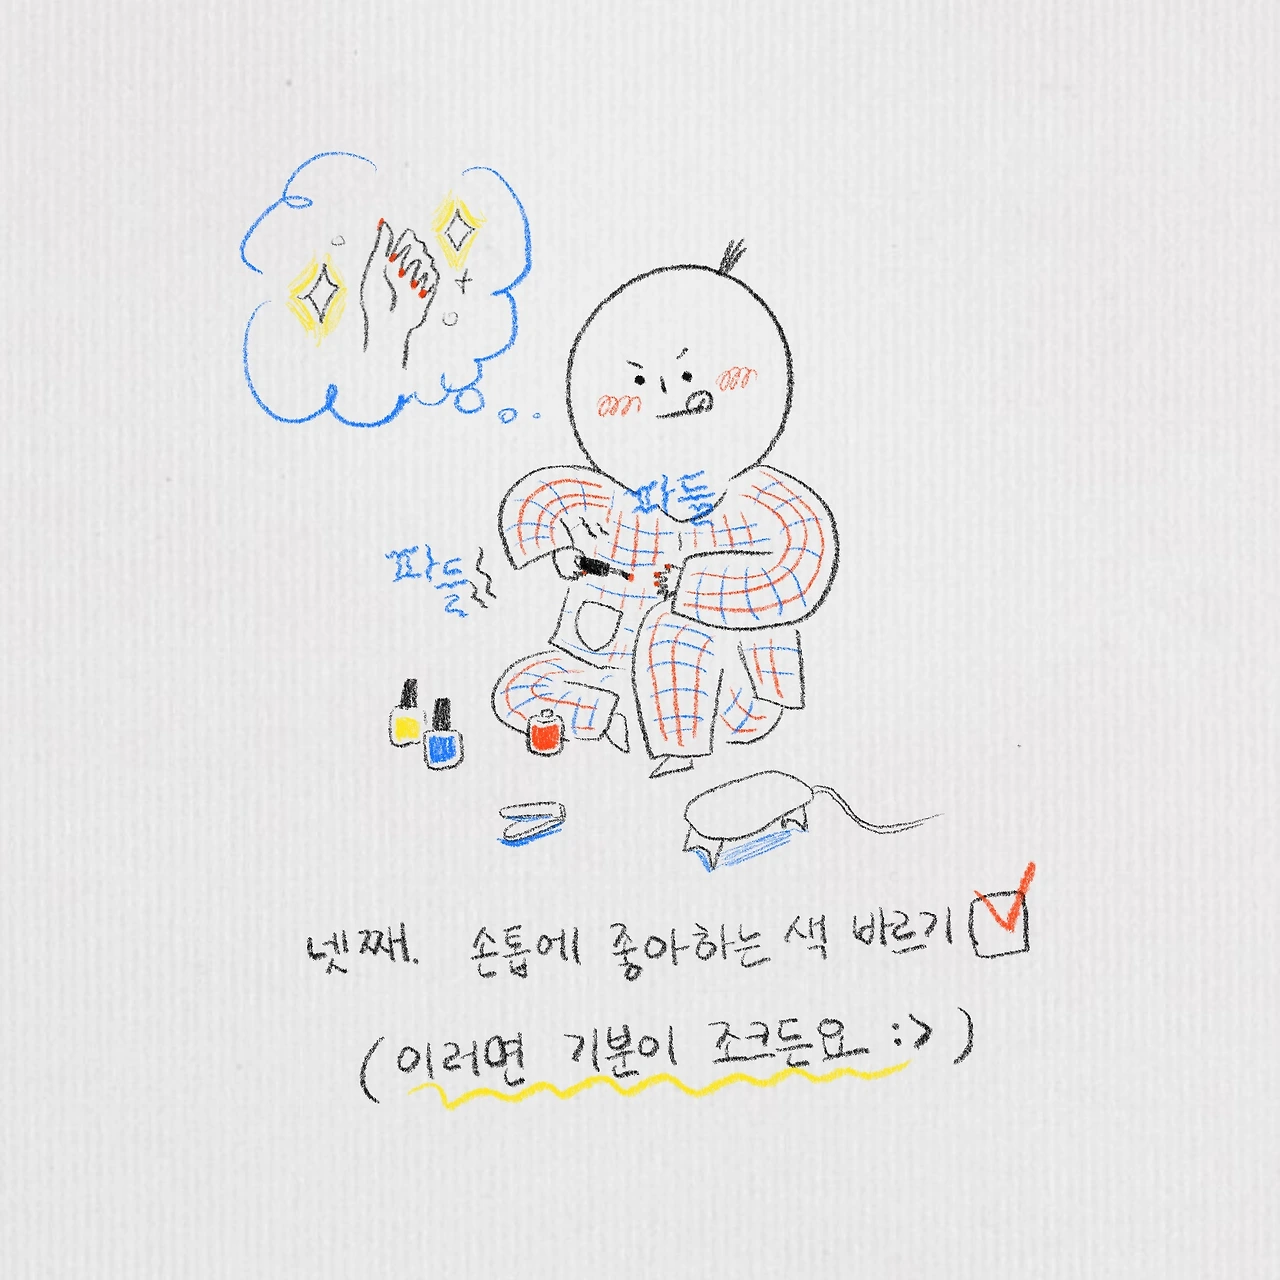 파들
파들
넷째. 손톱에 좋아하는 색 바르기
(이러면 기분이 조크든요 :>)